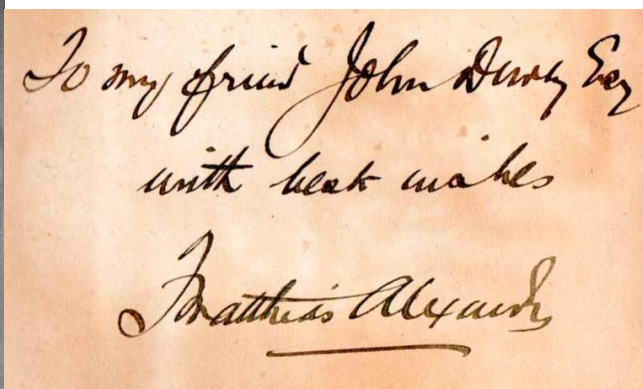 To my friend John Dewey Esq
with best wishes
F Matthias Alexander